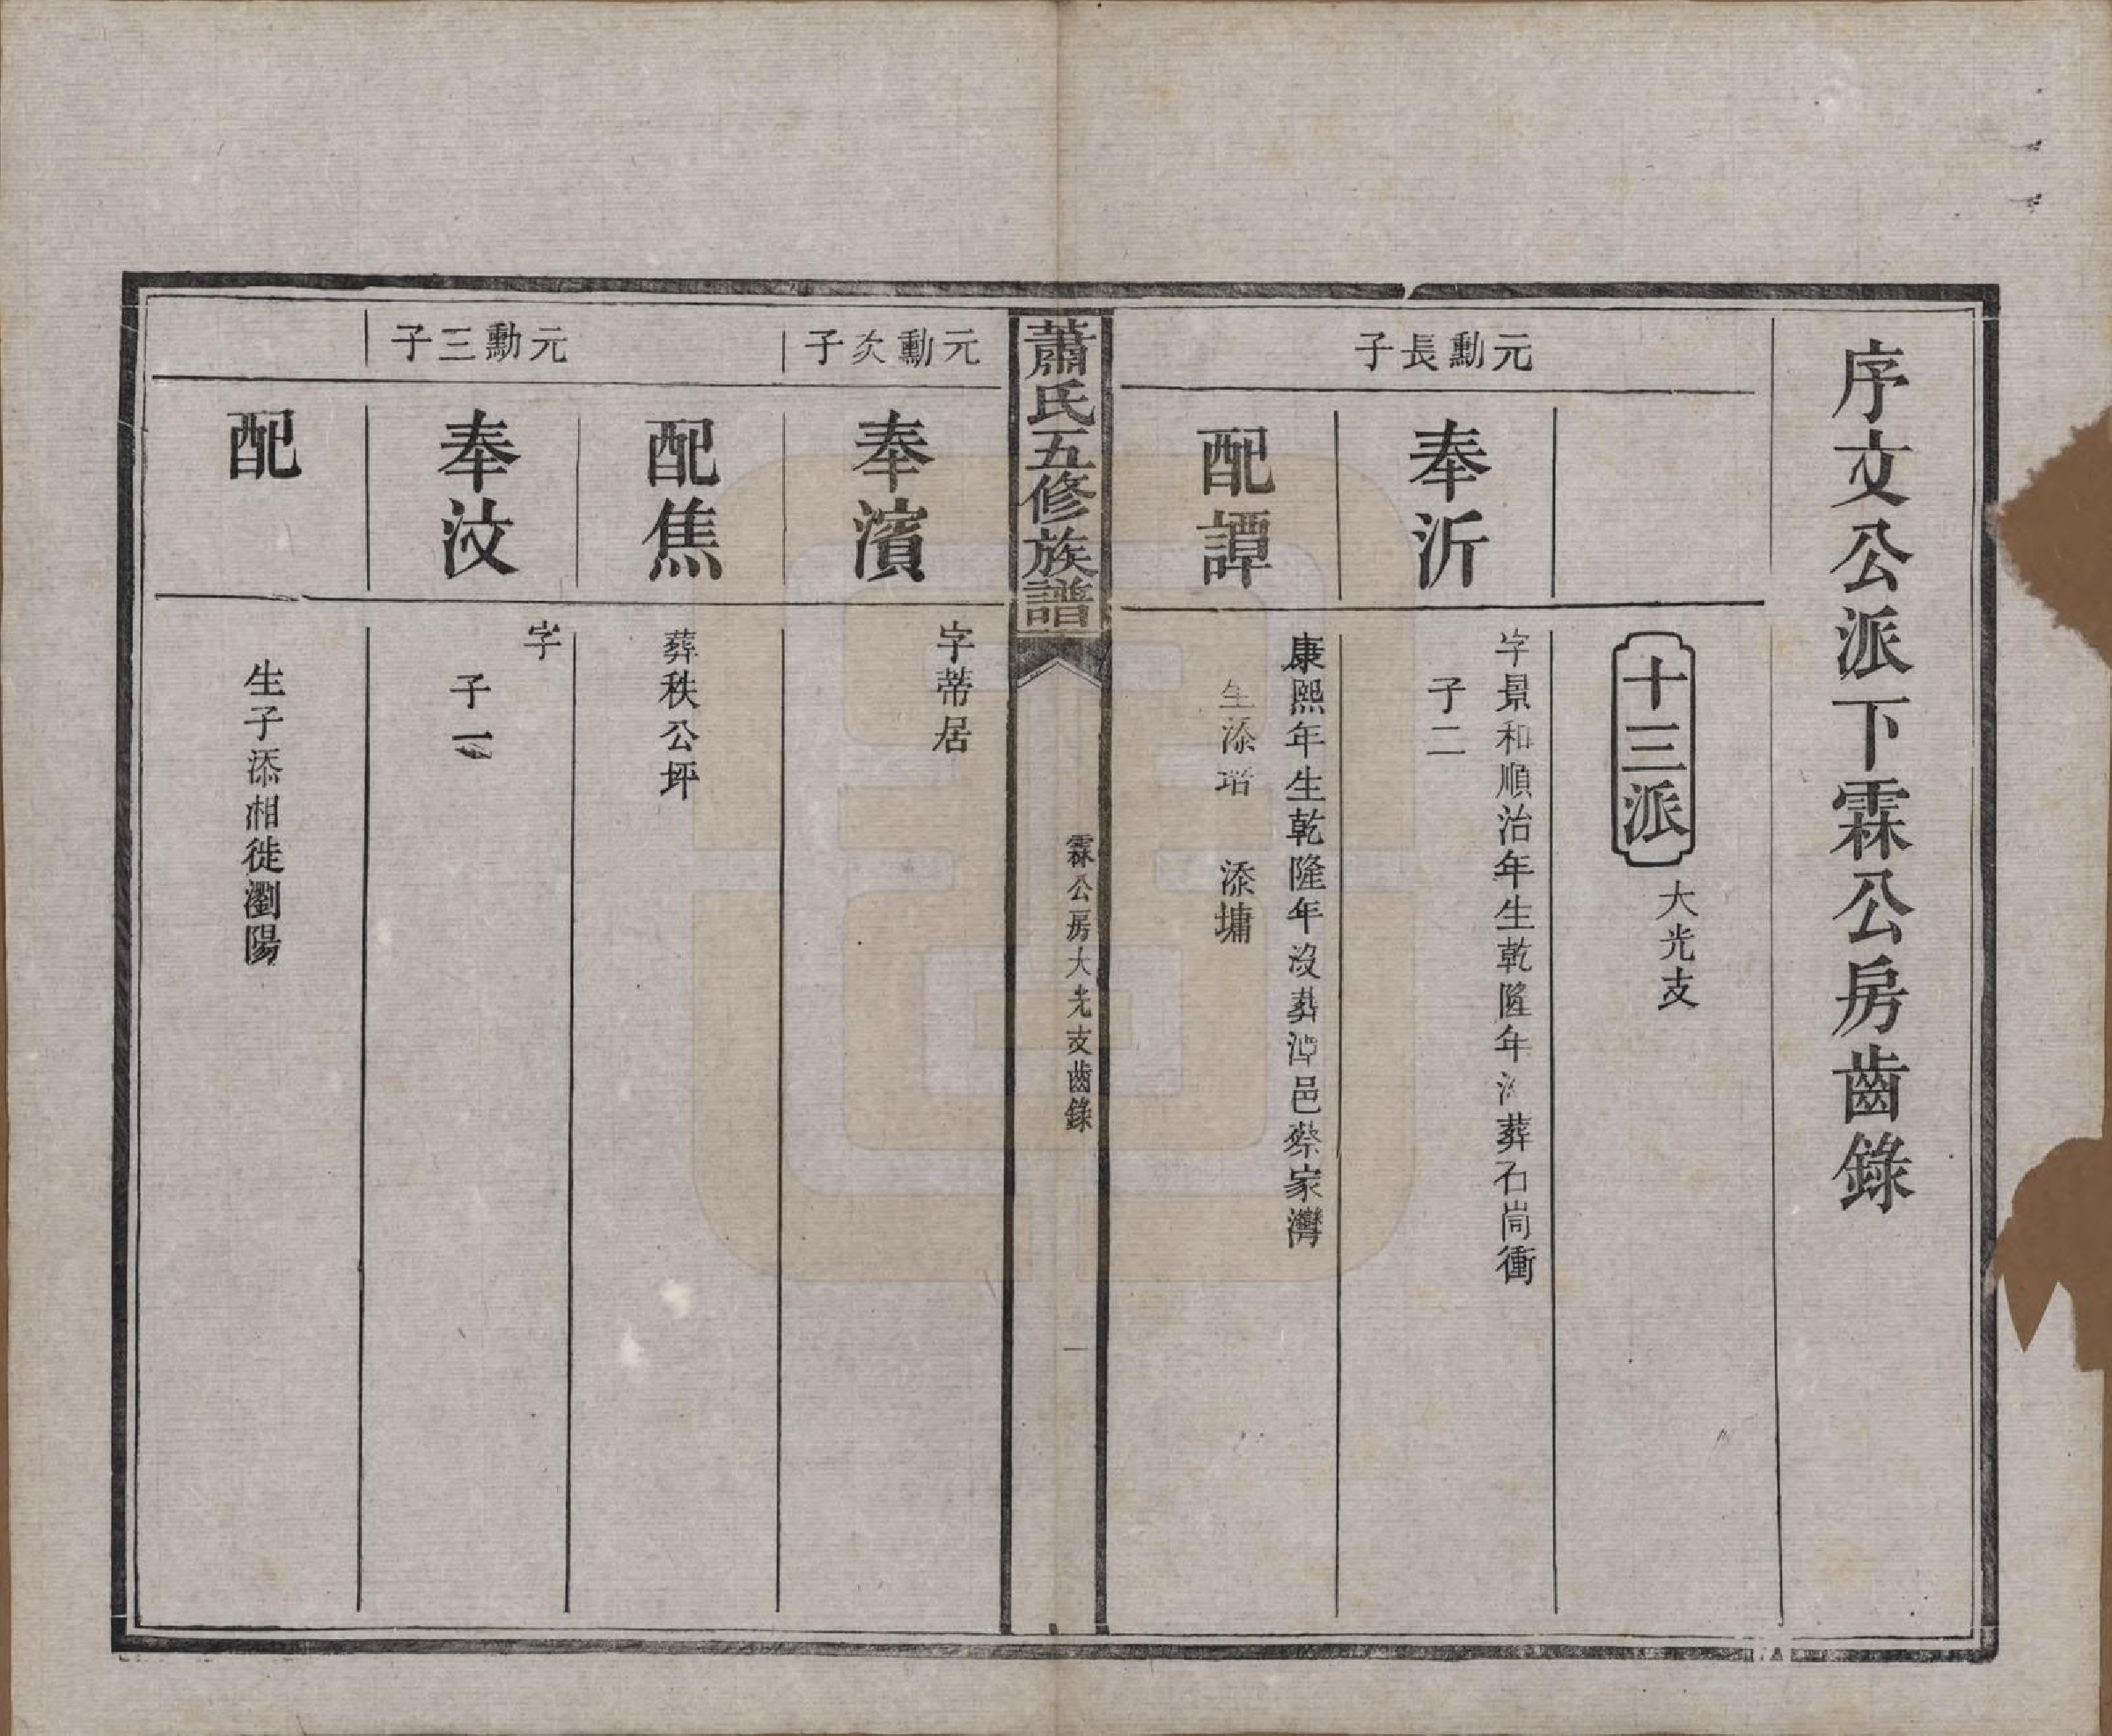 序文公派下霖公房齒錄
十三派
大光支
元勳長子
奉沂
字景和順治年生乾隆年沒葬石崗衝
子二
配譚
康熙年生乾隆年沒葬潭邑蔡家灣
生添 添墉
蕭氏五修族譜
霖公房大光支齒錄
一
元勳次子
奉濱
字蒂居
配焦
葬秩公坪
元勳三子
奉汶
字
子一
配
生子添相徙瀏陽